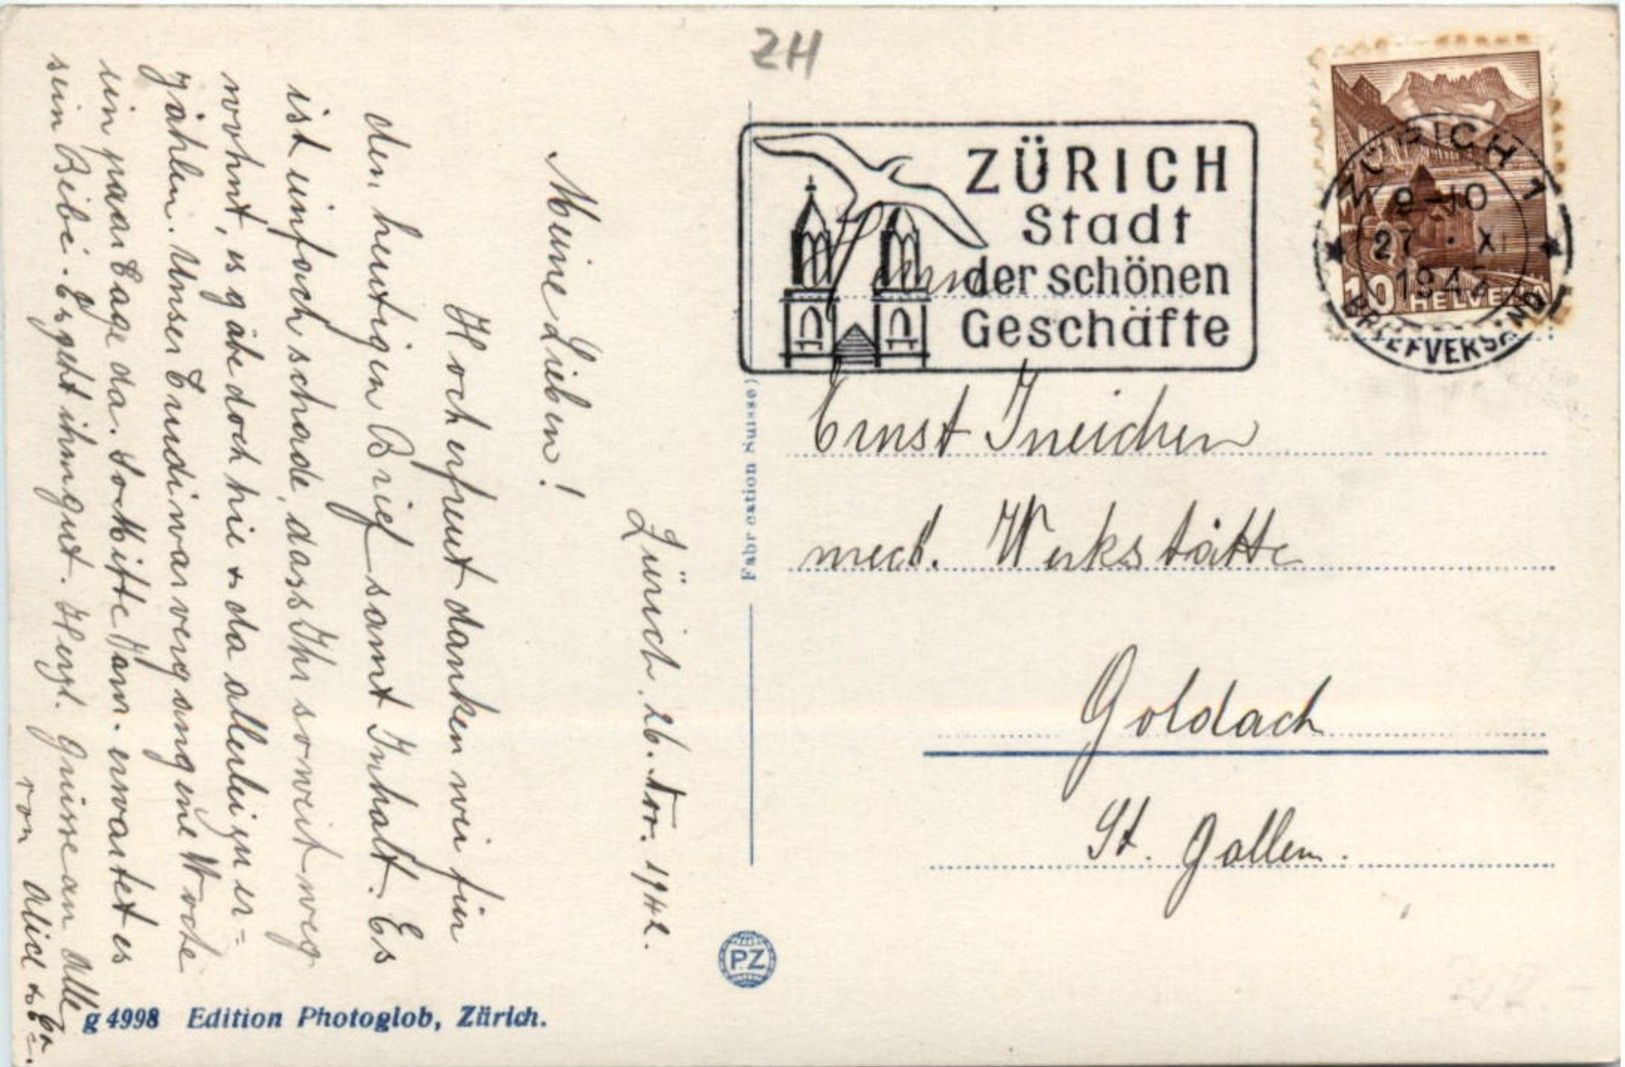 ZH
ZÜRICH
Stadt
der schönen
Geschäfte
ZÜRICH 1
9-10
27 · XI
1942
BRIEFVERSAND
10 HELVETIA
Fam.
Ernst Ineichen
mech. Werkstätte
Goldach
St. Gallen.
Fabrication Suisse)
PZ
g 4998 Edition Photoglob, Zürich.
Zürich, 26. Nov. 1942.
Meine Lieben!
Hocherfreut danken wir für
den heutigen Brief samt Inhalt. Es
ist einfach schade, dass Ihr so weit weg
wohnt, es gäbe doch hie & da allerlei zu er=
zählen. Unser Trudi war vergangene Woche
ein paar Tage da. So Mitte Jan. erwartet es
sein Bébé. Es geht ihm gut. Herzl. Grüsse an Alle
von Alice &